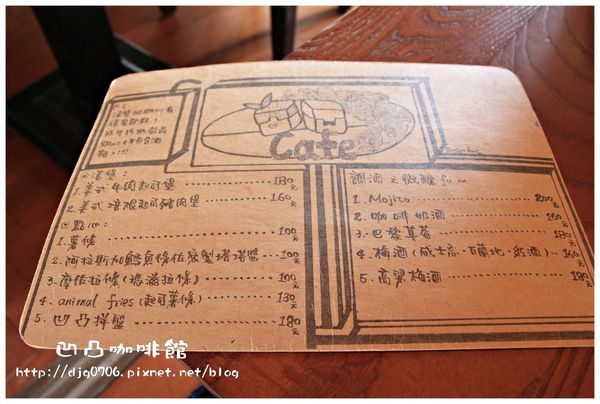 P.S.
Cafe
Design by
◎漢堡
1. 美式牛肉起司堡 180元
2. 美式培根起司豬肉堡 160元
◎點心:
1. 薯條 100元
2. 阿拉斯加鱈魚條佐蜜製塔塔醬 100元
3. 摩依拉條(瑪滋拉條) 100元
4. animal fries (起司薯條) 130元
5. 凹凸拼盤 180元
調酒之微醺fu~
1. Mojito 200元
2. 咖啡奶酒 160元
3. 巴黎草莓 180元
4. 梅酒(威士忌、白蘭地、飲酒) 160元
5. 高粱梅酒 180元
凹凸咖啡館
http://djg0706.pixnet.net/blog